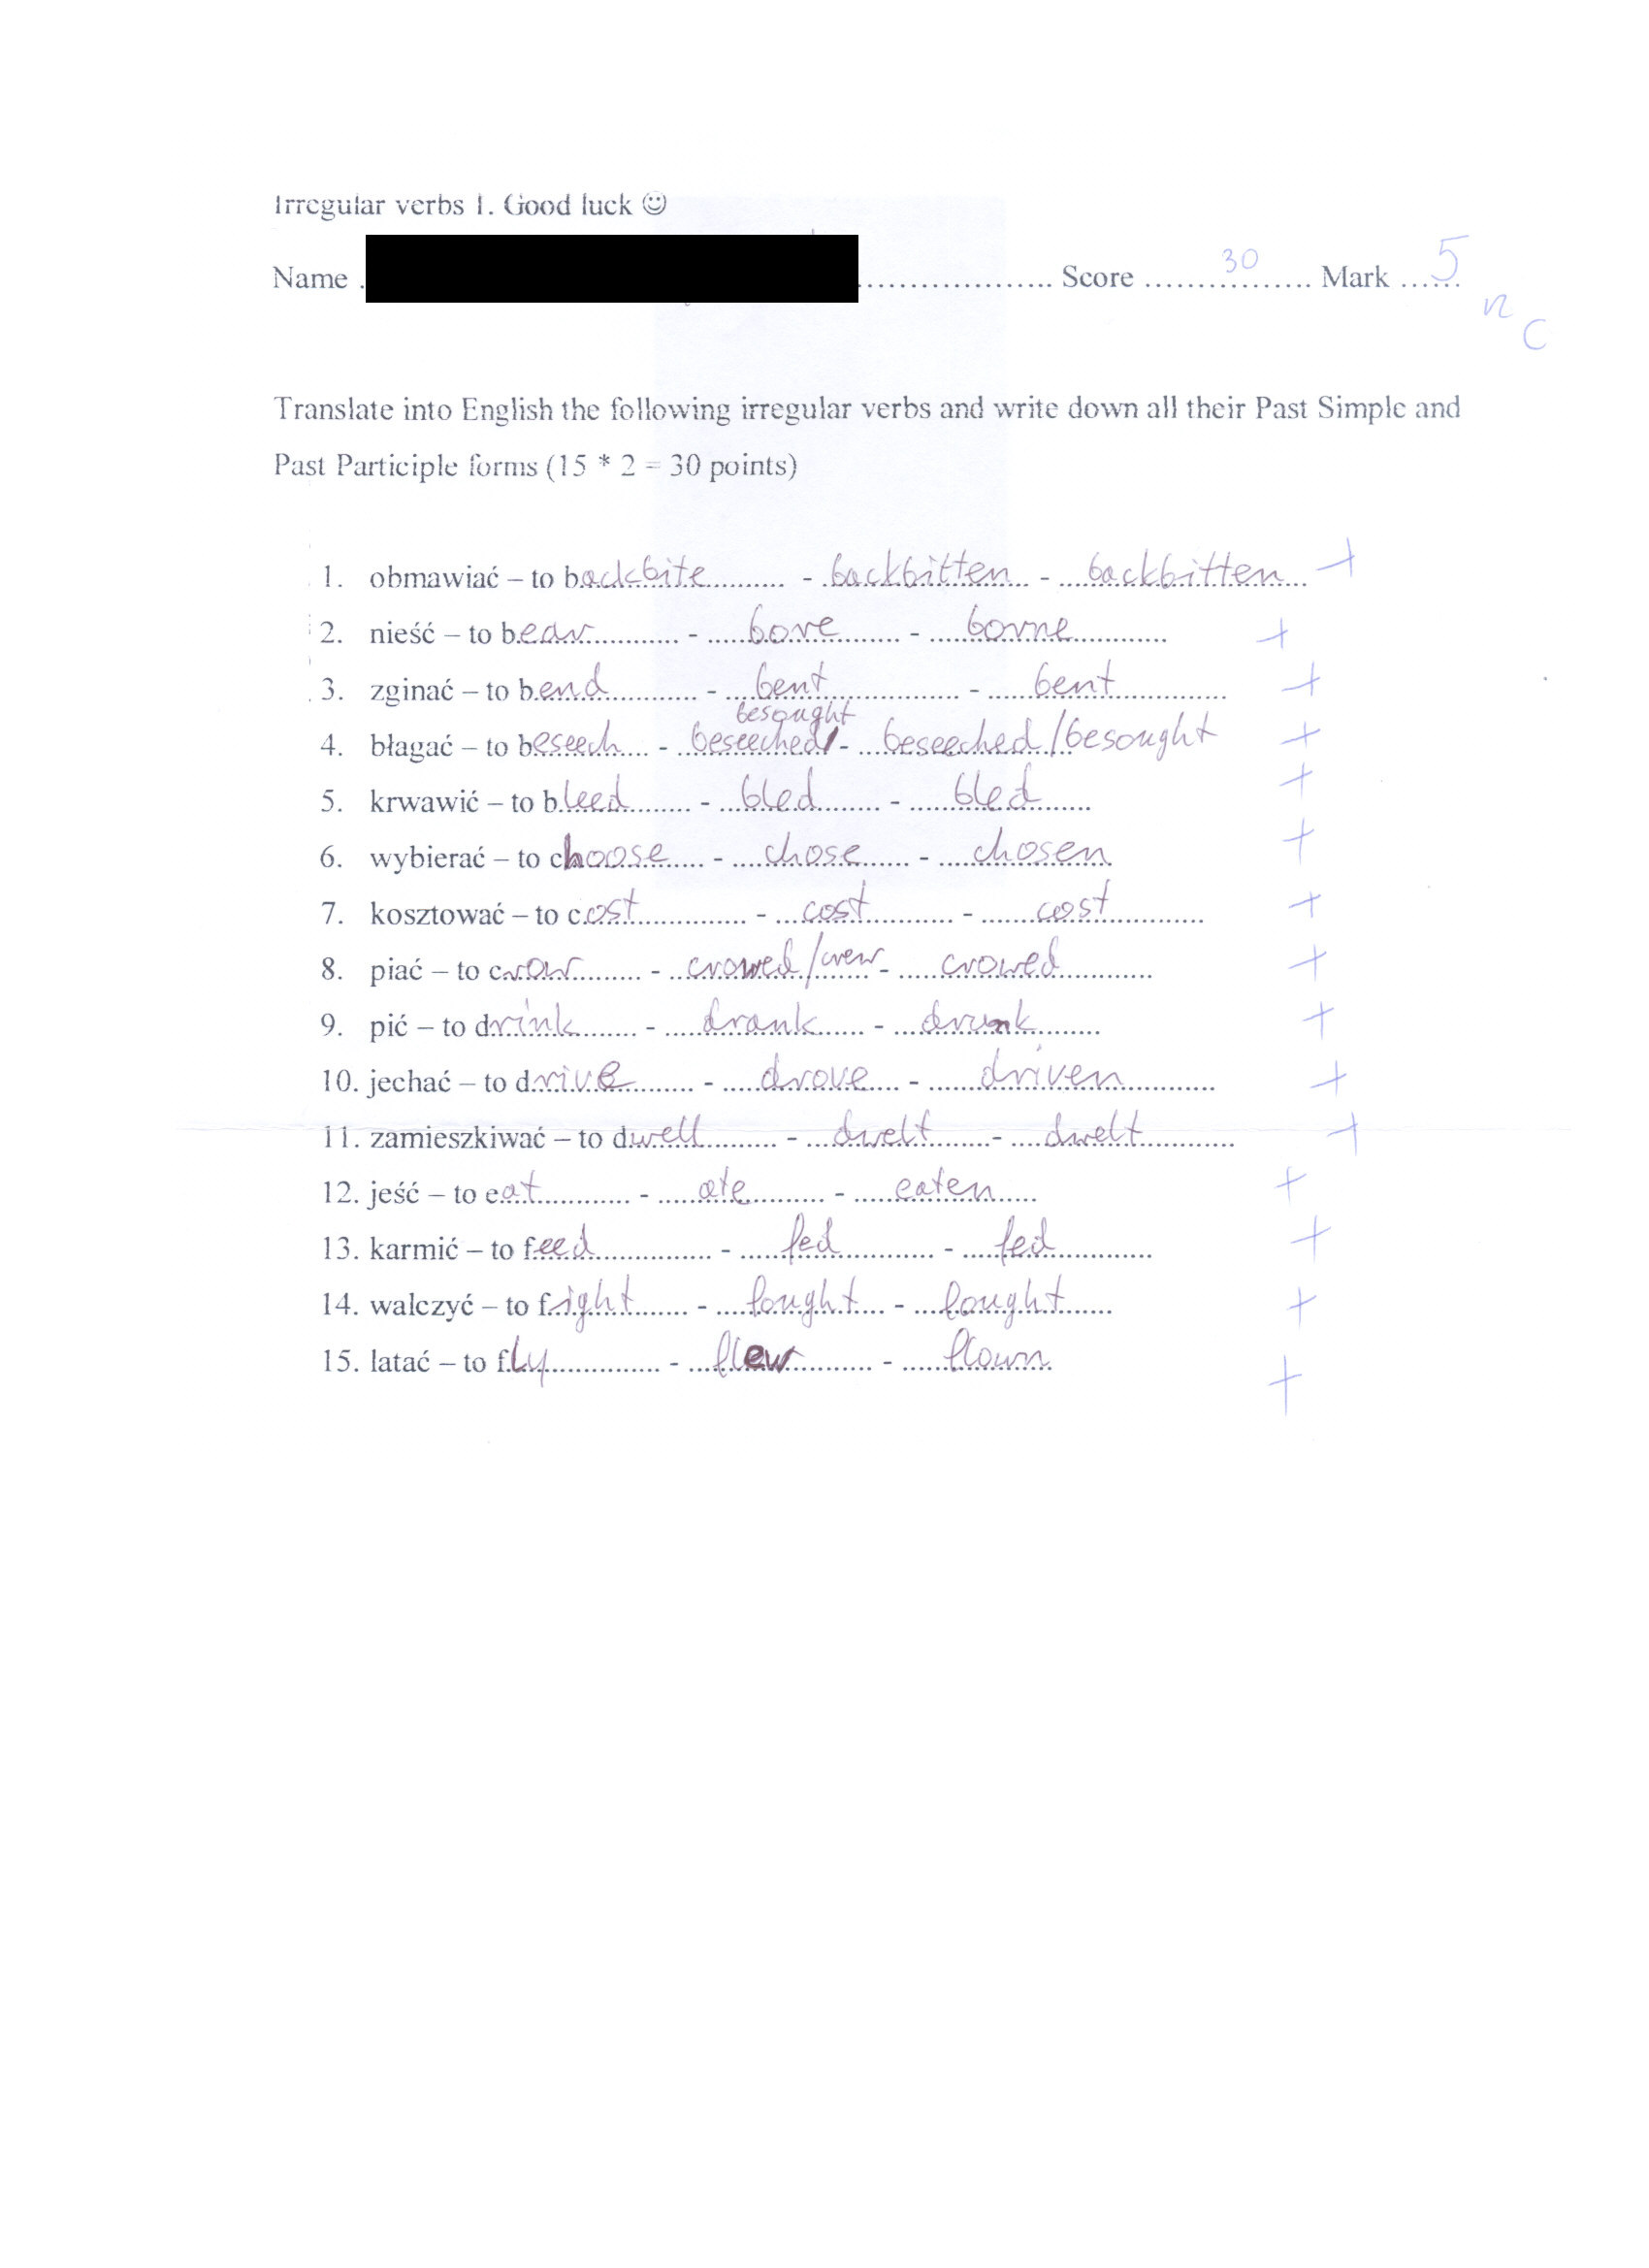 Irregular verbs 1. Good luck ☺
Name ........................ Score ......30......... Mark ...5...
n
C
Translate into English the following irregular verbs and write down all their Past Simple and
Past Participle forms (15 * 2 = 30 points)
1. obmawiać – to backbite - backbitten - backbitten +
2. nieść – to bear - bore - borne +
3. zginać – to bend - bent - bent +
besought
4. błagać – to beseech - beseeched/ - beseeched/besought +
5. krwawić – to bleed - bled - bled +
6. wybierać – to choose - chose - chosen +
7. kosztować – to cost - cost - cost +
8. piać – to crow - crowed/crew - crowed +
9. pić – to drink - drank - drunk +
10. jechać – to drive - drove - driven +
11. zamieszkiwać – to dwell - dwelt - dwelt +
12. jeść – to eat - ate - eaten +
13. karmić – to feed - fed - fed +
14. walczyć – to fight - fought - fought +
15. latać – to fly - flew - flown +